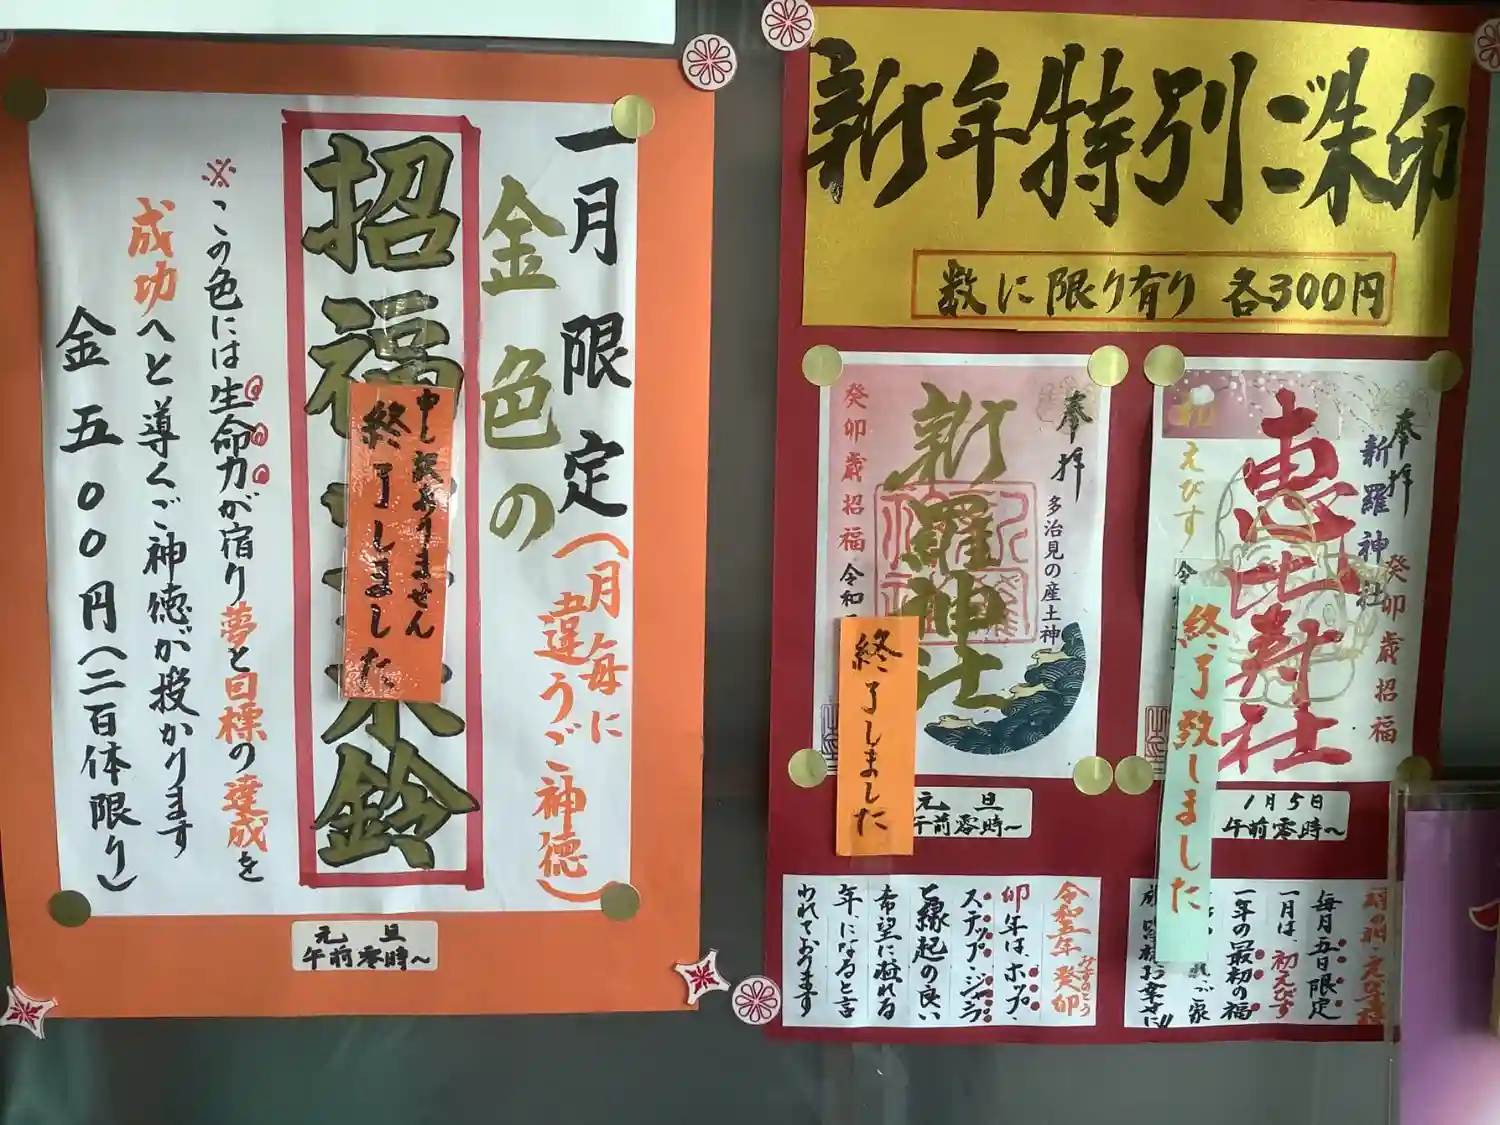 一月限定
(月毎に
違うご神徳)
金色の
招福
鈴
申し訳ありません
終了しました
※この色には生命力が宿り夢と目標の達成を
成功へと導くご神徳が授かります
金五〇〇円(二百体限り)
元旦
午前零時~
新年特別ご朱印
数に限り有り 各300円
奉拝
多治見の産土神
新羅神社
癸卯歳招福
令和
終了しました
元旦
午前零時~
奉拝
新羅神社
癸卯歳招福
恵比寿社
初えびす
令
終了致しました
1月5日
午前零時~
令和五年 癸卯
みずのとう
卯年は、ホップ・
ステップ・ジャンプ
と縁起の良い
希望に溢れる
年になると言
われております
毎月五日限定
一月は、初えびす
一年の最初の福
ご家
お幸せに!!